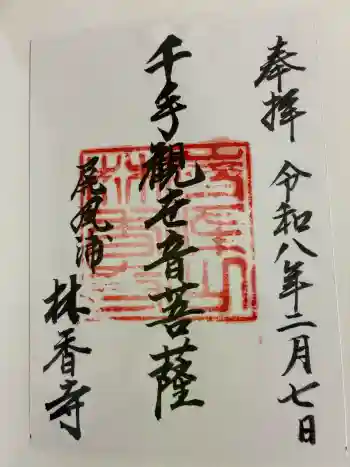 奉拝 令和八年二月七日
千手観世音菩薩
尾尻浦 林香寺